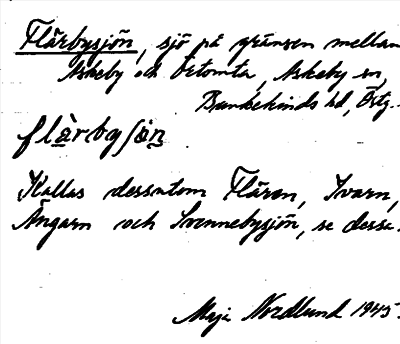 Flärbysjön, sjö på gränsen mellan
Askeby och Örtomta, Askeby sn,
Bankekinds hd, Östg.
flärbysjön
Kallas dessutom Flären, Ivarn,
Ängarn och Svennebysjön, se dessa.
Maja Nordlund 1945.